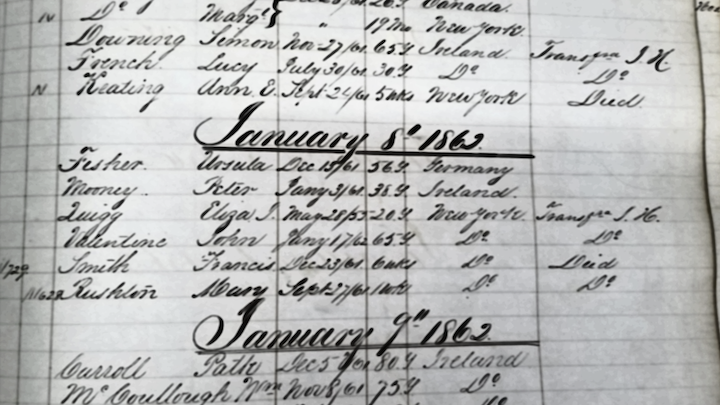 N Do Margt " 19 Mo New York.
Downing Simon Nov 27/61 65 Y Ireland. Transfrd I. H.
French. Lucy July 30/61 30 Y Do Do
N Keating Ann E. Sept 24/61 5 wks New York Died
January 8th 1862.
Fisher. Ursula Dec 13/61 56 Y Germany
Mooney. Peter Jany 3/61 38 Y Ireland.
Quigg Eliza J. May 28/55 20 Y New York. Transfrd I. H.
Valentine John Jany 1/62 65 Y Do Do
Smith Francis Dec 23/61 6 wks Do Died
Rushton Mary Sept 27/61 1 wk Do Do
January 9th 1862.
Carroll Patk Dec 5/61 80 Y Ireland
McCoullough Wm Nov 8/61 75 Y Do